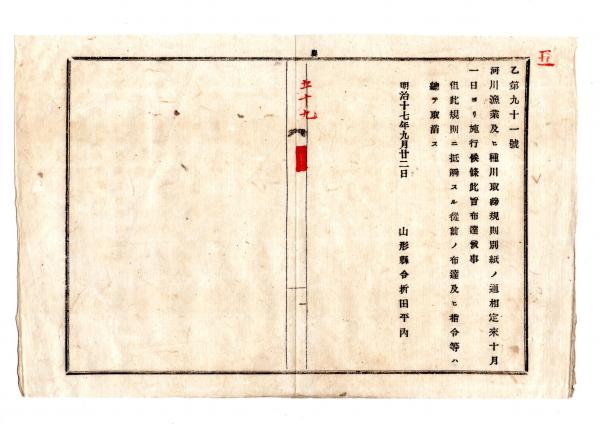 乙第九十一號
河川漁業及ヒ種川取締規則別紙ノ通相定來十月
一日ヨリ施行候條此旨布達候事
但此規則ニ抵觸スル從前ノ布達及ヒ指令等ハ
總テ取消ス
明治十七年九月廿二日
山形縣令折田平內
五十九
一